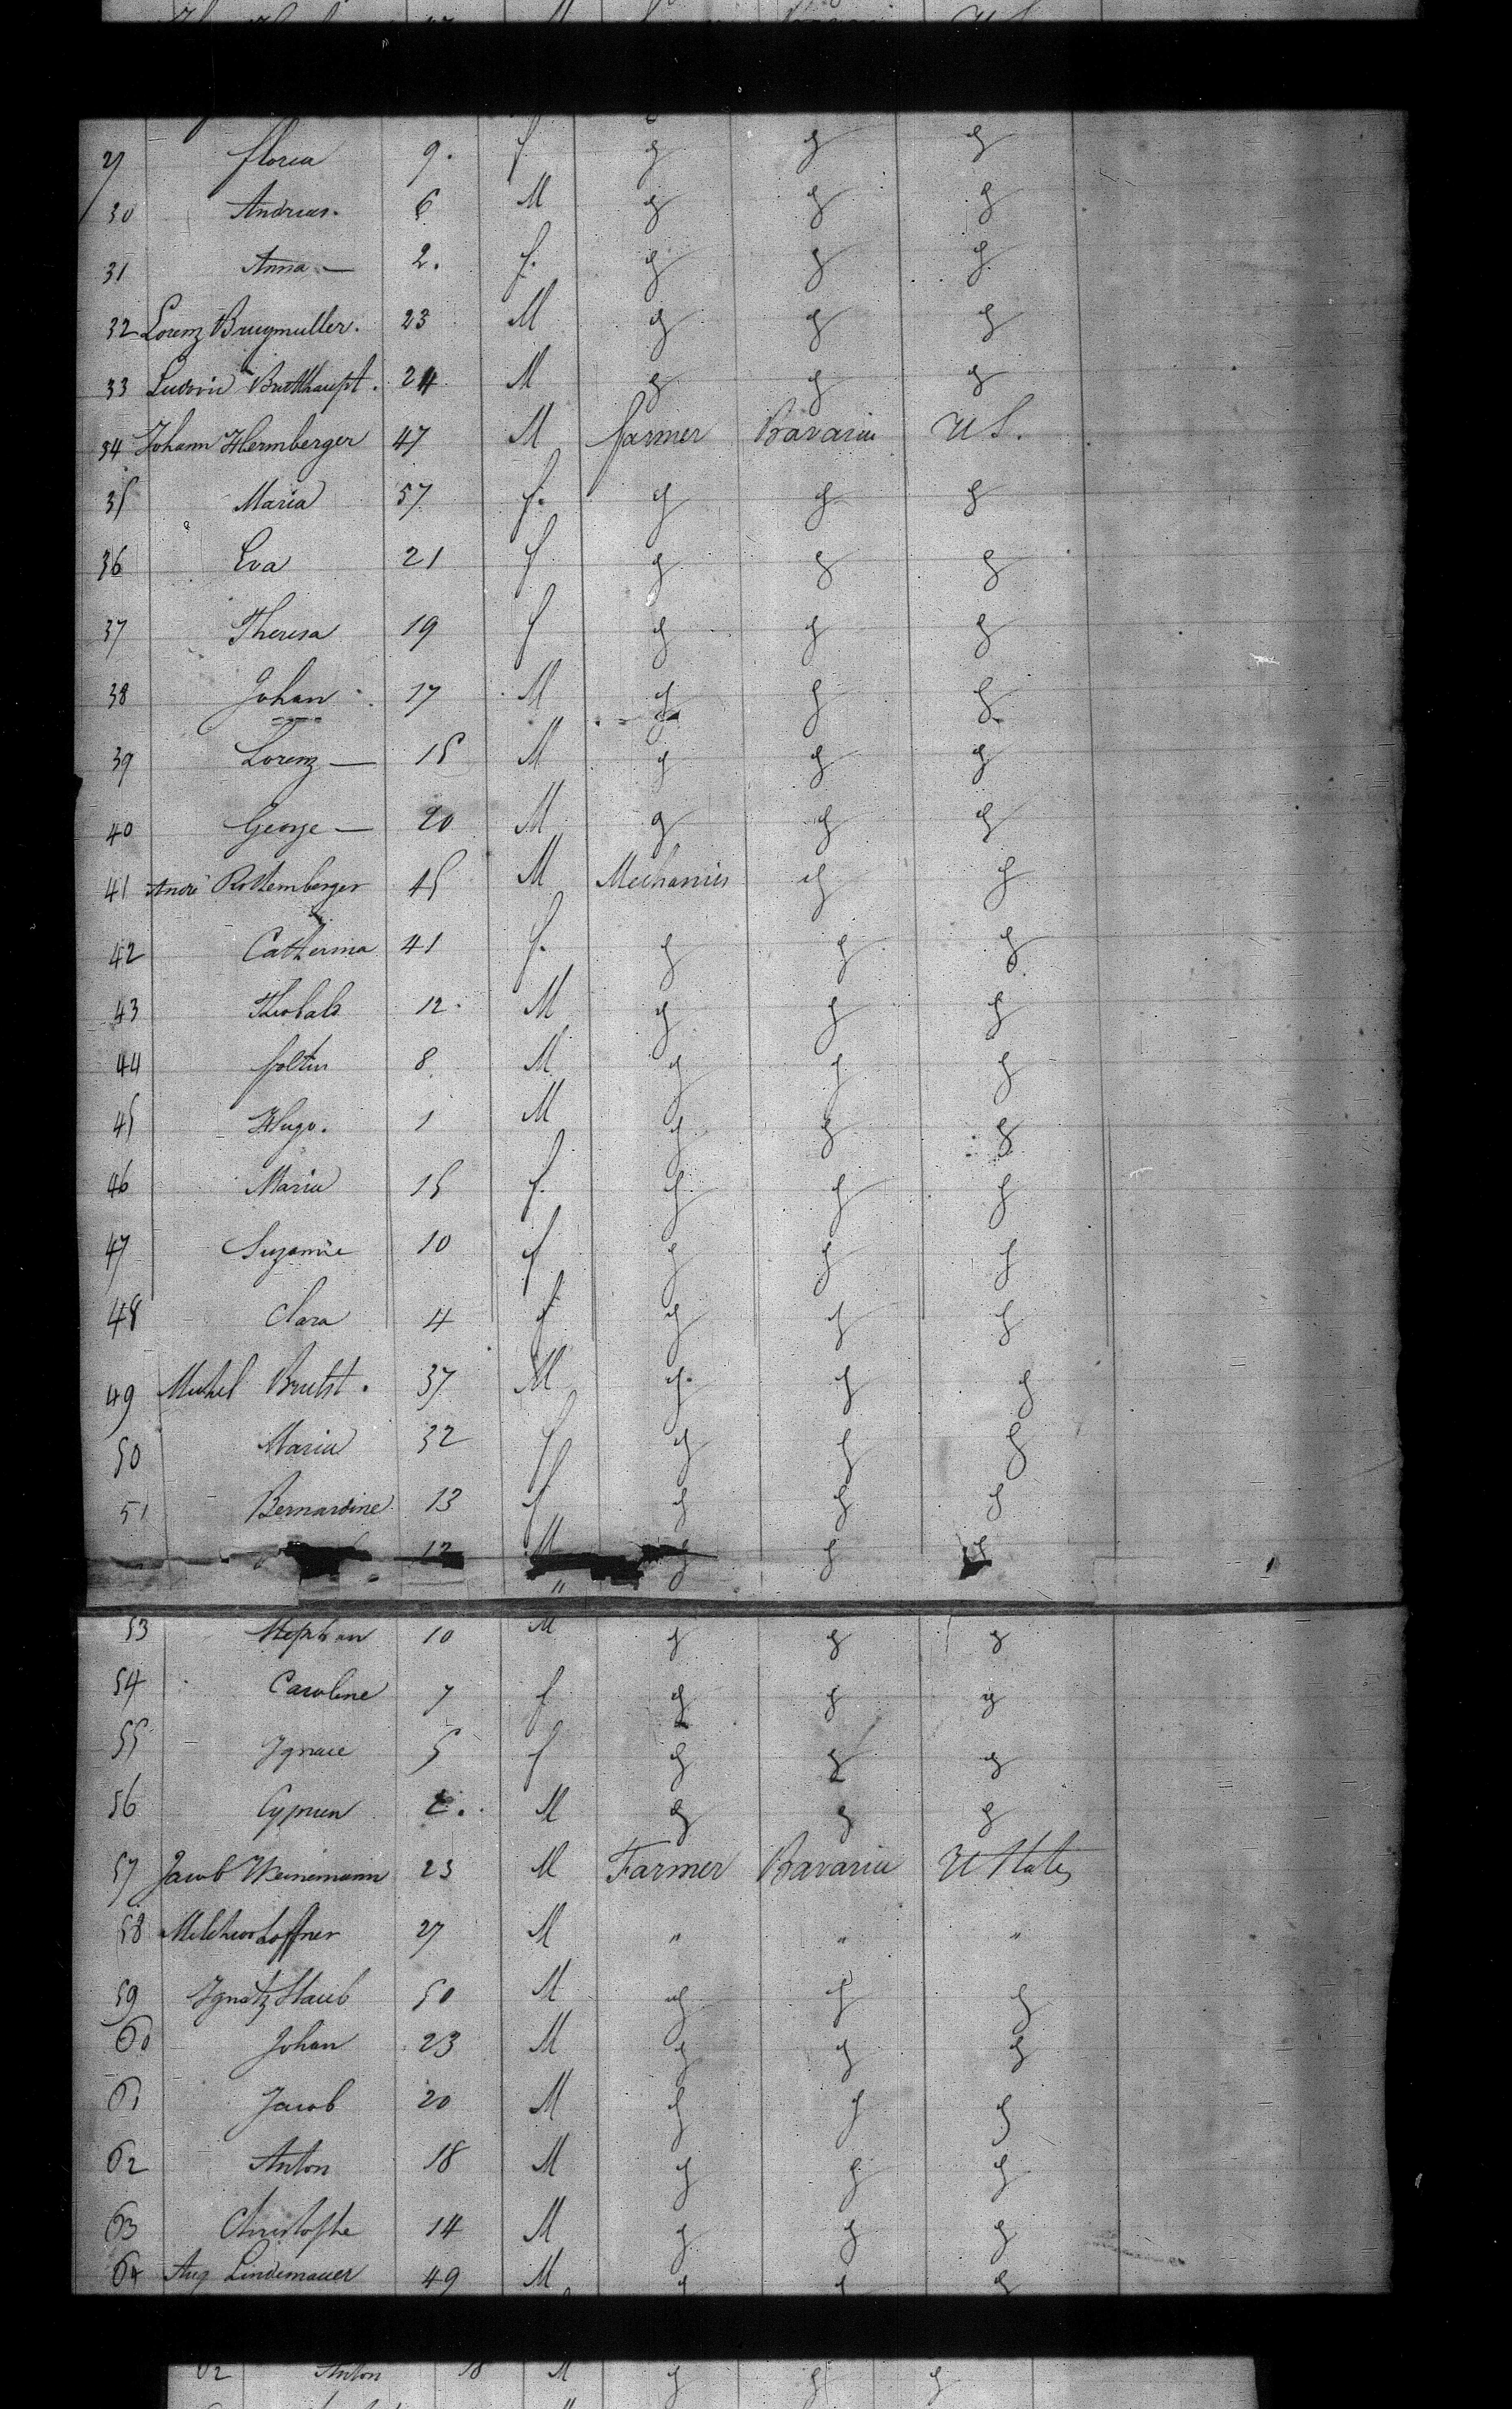 29 florea 9. f g g g
30 Andreas. 6 M g g g
31 Anna — 2. f. g g g
32 Lorenz Brugmuller. 23 M g g g
33 Ludovic Bustthaupt. 24 M g g g
34 Johann Hermberger 47 M farmer Bavaria U S.
35 Maria 57 f. g g g
36 Eva 21 f g g g
37 Theresa 19 f g g g
38 Johan 17 M g g g
39 Lorenz — 15 M g g g
40 George — 20 M g g g
41 André Rottemberger 45 M Mechanics g g
42 Catherina 41 f. g g g
43 Theobald 12. M g g g
44 8 M g g g
45 Hugo. 1 M g g g
46 Maria 15 f. g g g
47 Suzannie 10 f g g g
48 Clara 4 f g g g
49 Michel 37 M g g g
50 Maria 32 f g g g
51 Bernardine 13 f g g g
12 M g g g
"
53 Stephan 10 M g g g
54 Caroline 7 f g g g
55 Ignace 5 f g g g
56 Cyprien 2. M g g g
57 Jacob Weinemann 23 M Farmer Bavaria U States
58 Melchior Loffner 27 M " " "
59 Ignatz Staub 50 M g g g
60 Johan 23 M g g g
61 Jacob 20 M g g g
62 Anton 18 M g g g
63 Christophe 14 M g g g
64 Aug Lindemauer 49 M g g g
62 Anton 18 M g g g